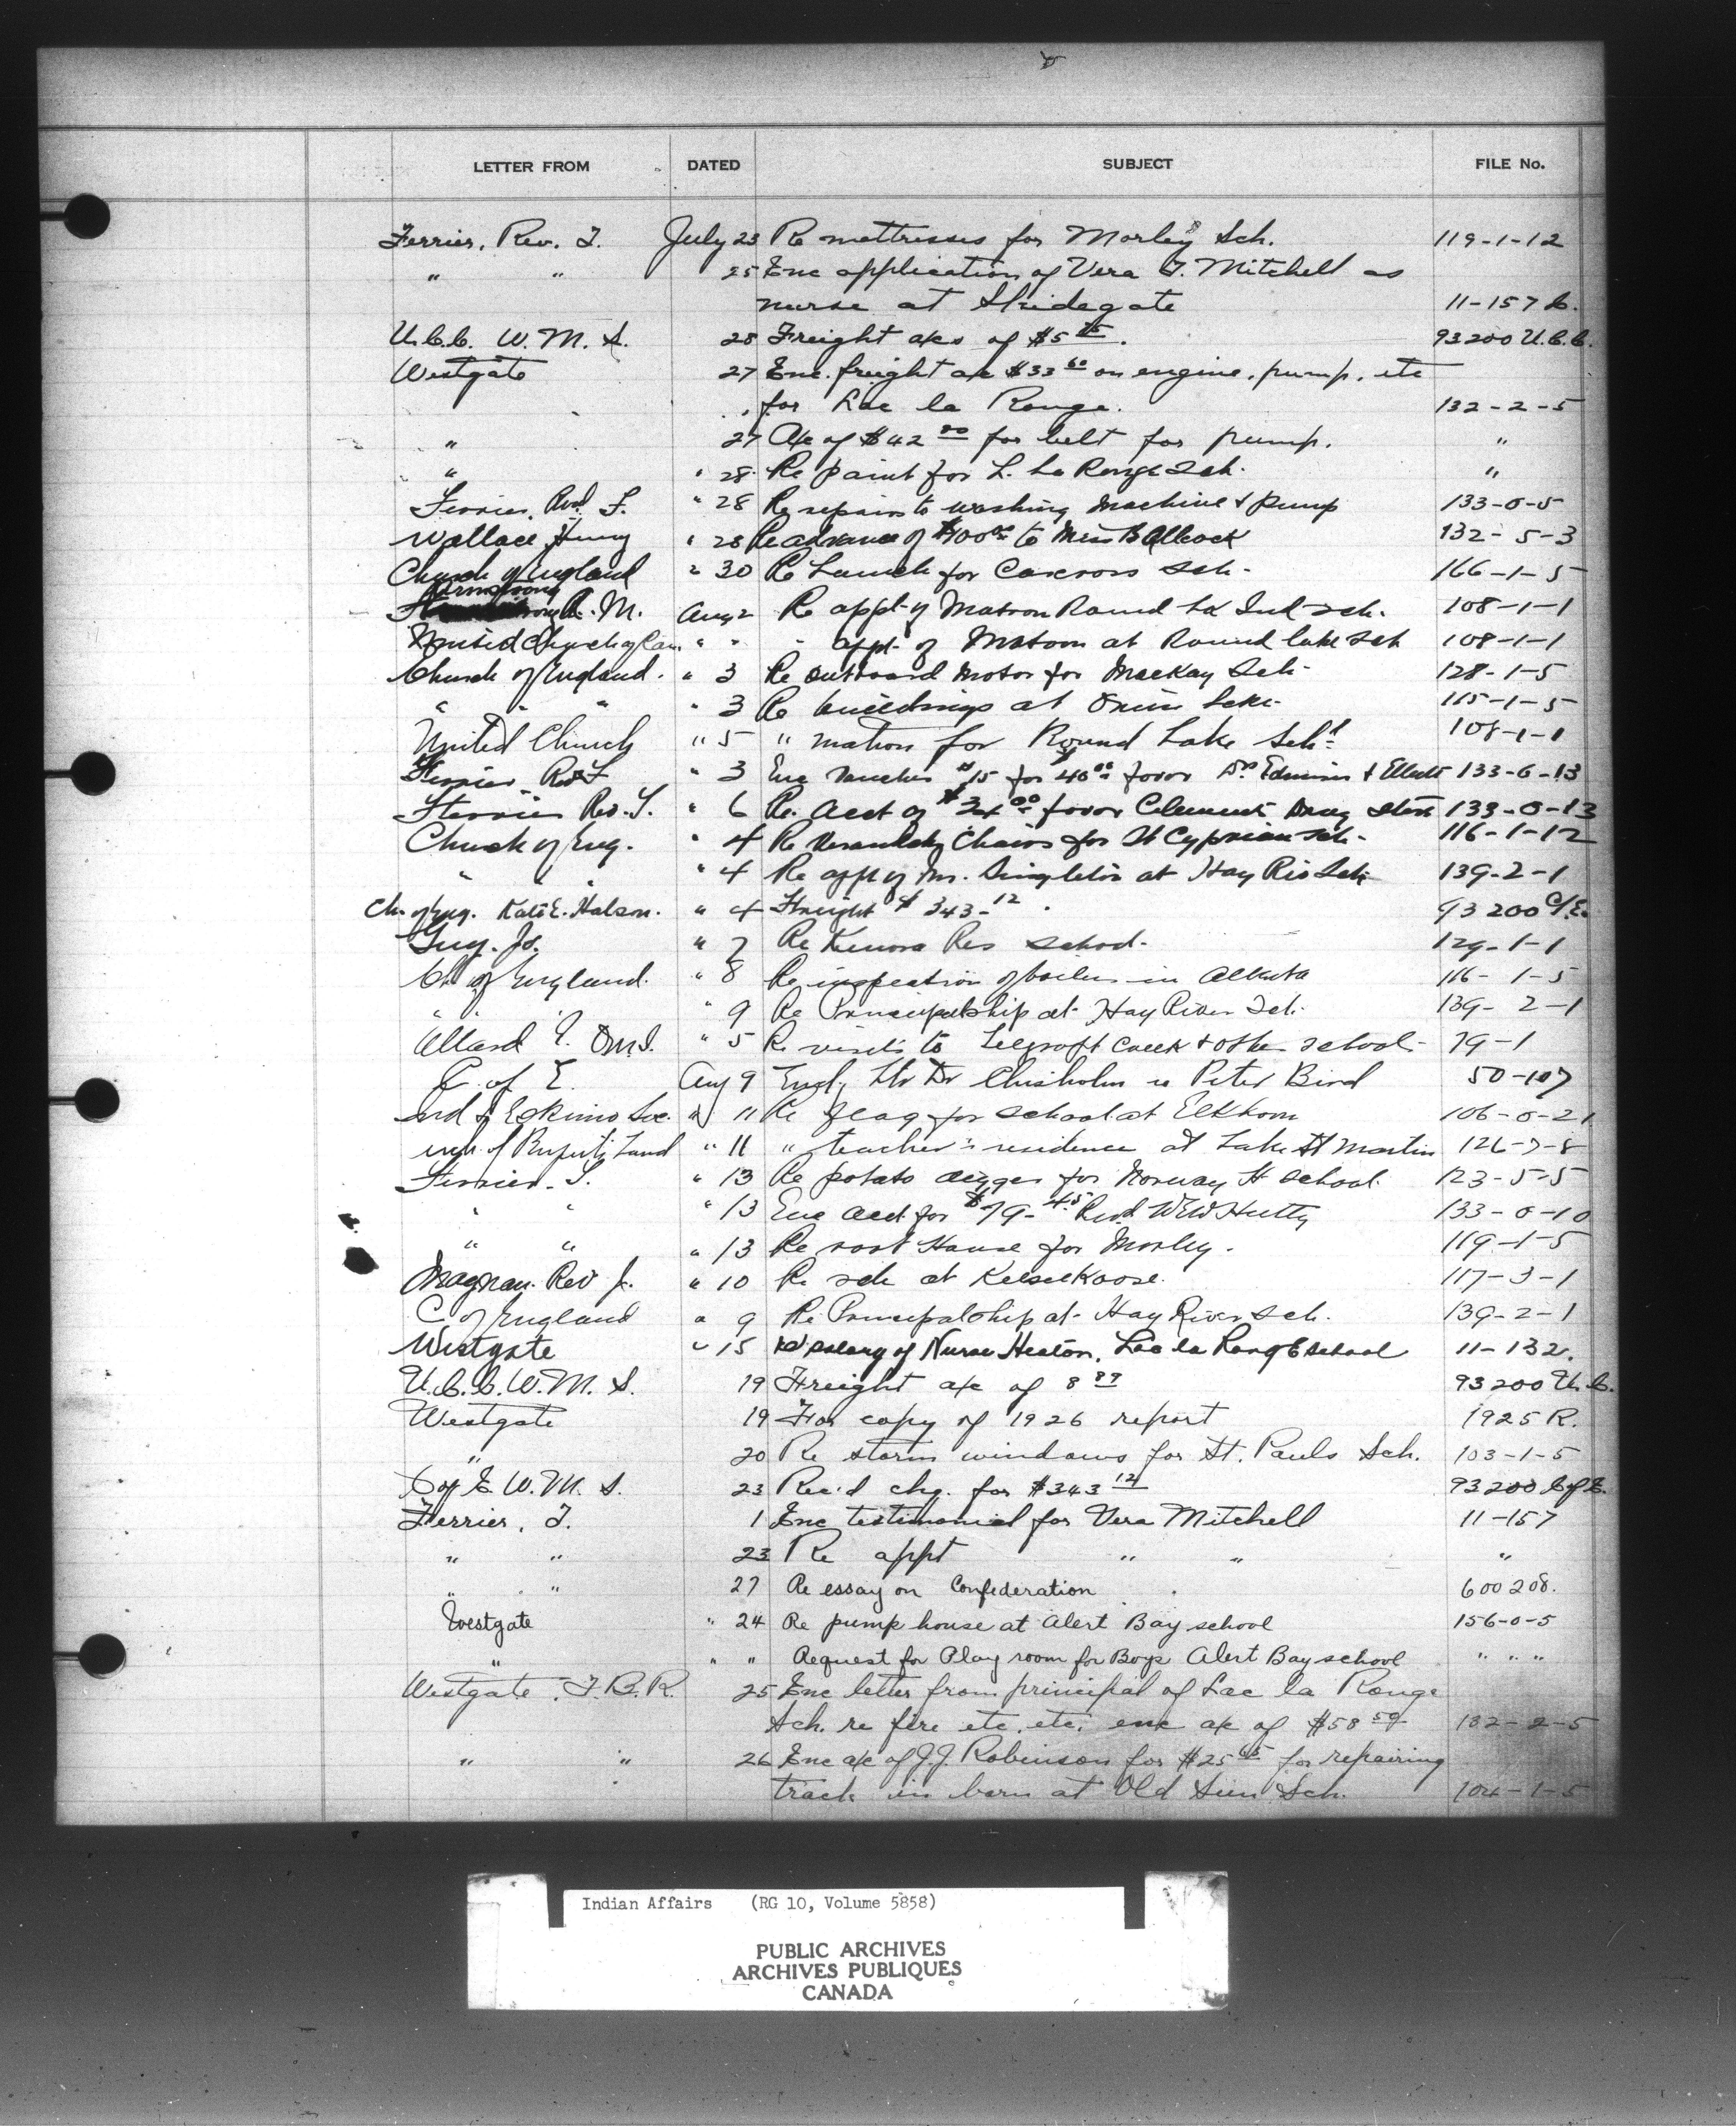 LETTER FROM DATED SUBJECT FILE No.
Ferrier, Rev. T. July 23 Re mattresses for Morley Sch. 119-1-12
" " 25 Enc application of Vera T. Mitchell as
nurse at Skidegate 11-157
U.C.C. W.M.S. 28 Freight a/cs of $5 93200 U.C.C.
Westgate 27 Enc. freight a/c $33 60 on engine, pump, etc
for Lac la Ronge. 132-2-5
" 27 A/c of $42 for belt for pump. "
" " 28 Re paint for L. La Ronge Sch. "
Ferrier, Rev. T. " 28 Re repairs to washing Machine & pump 133-0-5
Wallace, Henry " 28 Re advance of $100 00 to Miss B Allcock 132-5-3
Church of England " 30 Re Launch for Carcross Sch- 166-1-5
Armstrong R. M. Aug 2 Re appt of Matron Round Lk Ind sch. 108-1-1
United Church of Can. " " " appt. of Matron at Round lake sch 108-1-1
Church of England. " 3 Re outboard Motor for MacKay Sch- 128-1-5
" " " " 3 Re buildings at Onion Lake- 115-1-5
United Church " 5 " matron for Round Lake Sch 108-1-1
Ferrier Rev T " 3 Enc Voucher #15 for 40 00 favor Drs Edmison & 133-6-13
Ferrier Rev. T. " 6 Re. acct of $ 00 favor Clement Drug store 133-0-13
Church of Eng. " 4 Re Verandah Chairs for St Cyprian sch- 116-1-12
" " " " 4 Re appt of Mr. Singleton at Hay Riv Sch 139-2-1
Ch. of Eng. Kate E. Halson. " 4 Freight $343-12. 93200 C/E.
Guy. Js. " 7 Re Kenora Res school- 129-1-1
Ch of England. " 8 Re inspection of boilers in Alberta 116-1-5
" " " 9 Re Principalship at Hay River Sch. 139-2-1
Allard E. OMI. " 5 Re visits to Telegraph Creek & other schools- 79-1
C. of E. Aug 9 Encl. ltr Dr Chisholm re Peter Bird 50-107
Ind & Eskimo Soc. " 11 Re flag for school at Elkhorn 106-0-21
of Ruperts Land " 11 " teacher's residence at Lake St Martin 126-7-8
Ferrier. T. " 13 Re potato digger for Norway H school. 123-5-5
" " " 13 Enc acct for $79-45 Revd WEW Hutty 133-0-10
" " " 13 Re root House for Morley. 119-1-5
Magnan. Rev J. " 10 Re sch at Keeseekoose. 117-3-1
C of England " 9 Re Principalship at Hay River sch. 139-2-1
Westgate " 15 Re salary of Nurse Heaton, Lac la Ronge school 11-132.
U.C.C. W.M.S. 19 Freight a/c of 8 89 93200 U.C.
Westgate 19 For copy of 1926 report 1925 R.
" 20 Re storm windows for St. Pauls Sch. 103-1-5
C of E W.M.S. 23 Rec'd chq. for $343 12 93200 C of E.
Ferrier, T. 1 Enc testimonial for Vera Mitchell 11-157
" " 23 Re appt " " "
" " 27 Re essay on Confederation 600208.
Westgate " 24 Re pump house at Alert Bay school 156-0-5
" " " Request for Play room for Boys Alert Bay school " " "
Westgate, T.B.R. 25 Enc letter from principal of Lac la Ronge
Sch. re fire etc. etc; enc a/c of $58 59 132-2-5
" " 26 Enc a/c of J.J. Robinson for $25 65 for repairing
track in barn at Old Sun Sch. 104-1-5
Indian Affairs (RG 10, Volume 5858)
PUBLIC ARCHIVES
ARCHIVES PUBLIQUES
CANADA